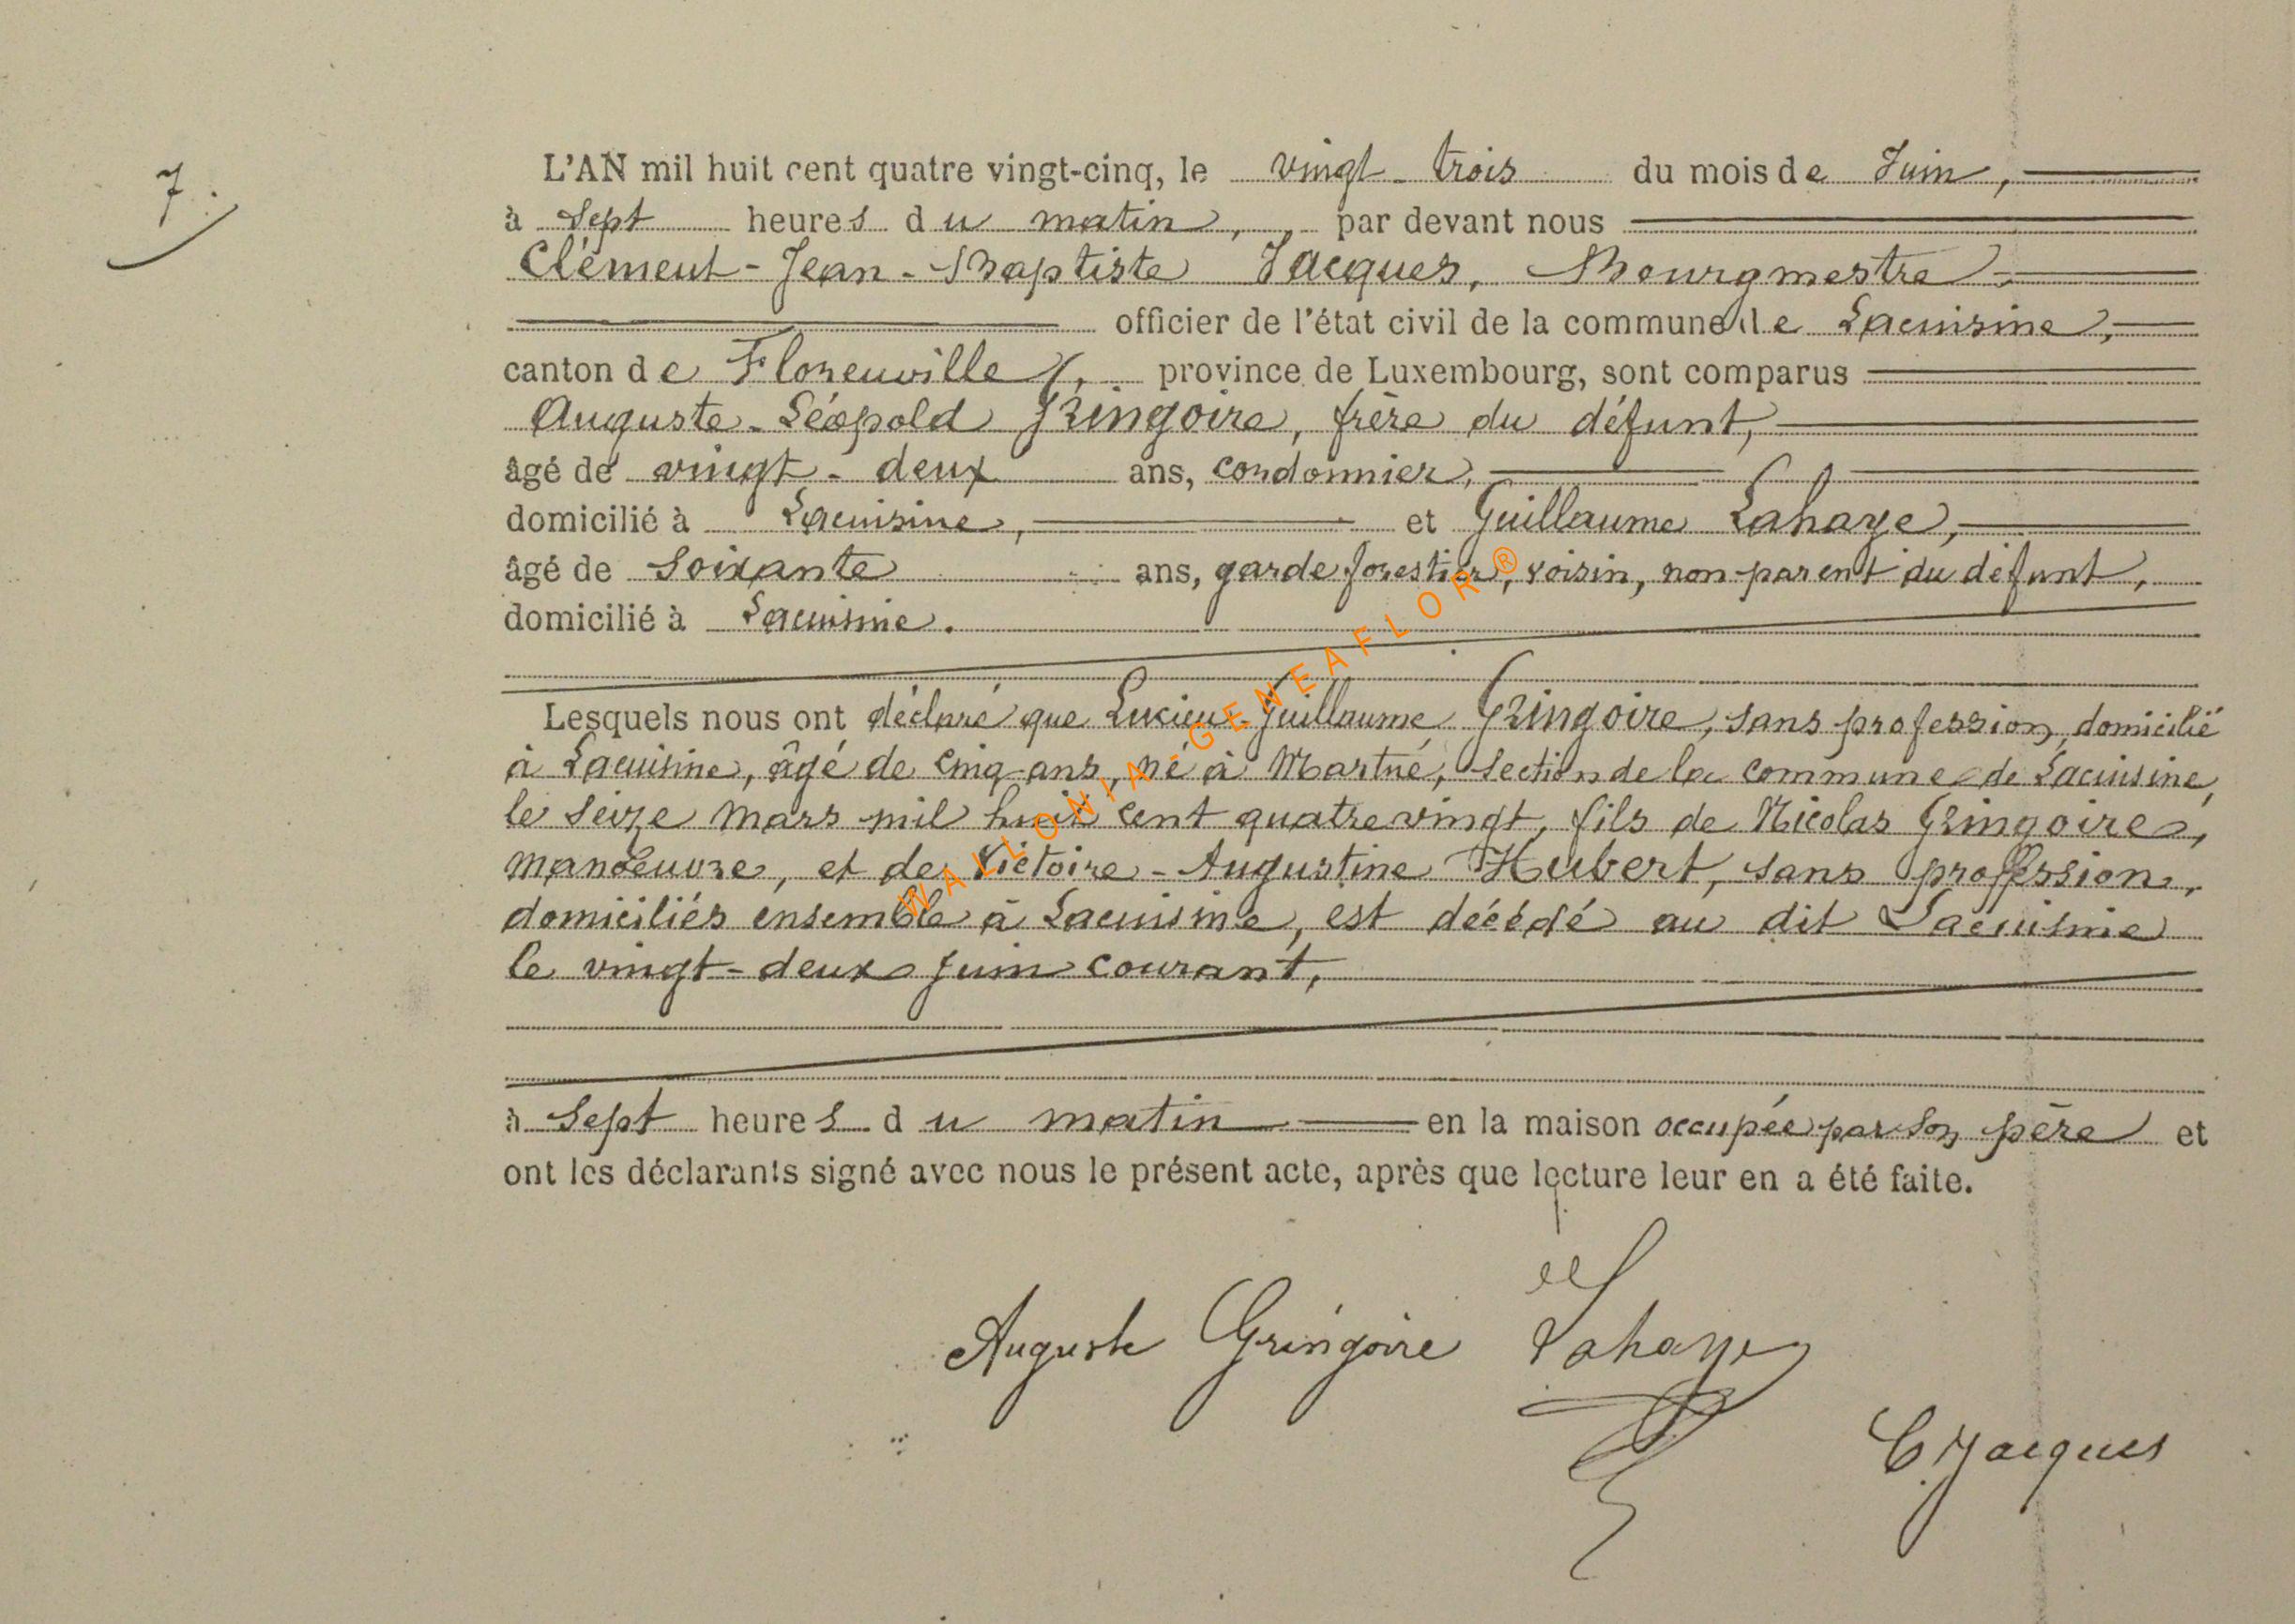 7.
L'AN mil huit cent quatre vingt-cinq, le vingt-trois du mois de Juin,
à sept heures du matin, par devant nous
Clément-Jean-Baptiste Jacques, Bourgmestre
officier de l'état civil de la commune de Lacuisine,
canton de Florenville, province de Luxembourg, sont comparus
Auguste-Léopold Gringoire, frère du défunt,
âgé de vingt-deux ans, cordonnier,
domicilié à Lacuisine, et Guillaume Lahaye,
âgé de soixante ans, garde forestier, voisin, non parent du défunt,
domicilié à Lacuisine.
Lesquels nous ont déclaré que Lucien-Guillaume Gringoire, sans profession, domicilié
à Lacuisine, âgé de cinq ans, né à Martué, section de la commune de Lacuisine,
le seize mars mil huit cent quatre vingt, fils de Nicolas Gringoire,
manoeuvre, et de Victoire-Augustine Hubert, sans profession,
domiciliés ensemble à Lacuisine, est décédé au dit Lacuisine
le vingt-deux juin courant,
à sept heures du matin en la maison occupée par son père et
ont les déclarants signé avec nous le présent acte, après que lecture leur en a été faite.
Auguste Gringoire Lahaye
C Jacques
WALLONIA-GENEAFLOR®